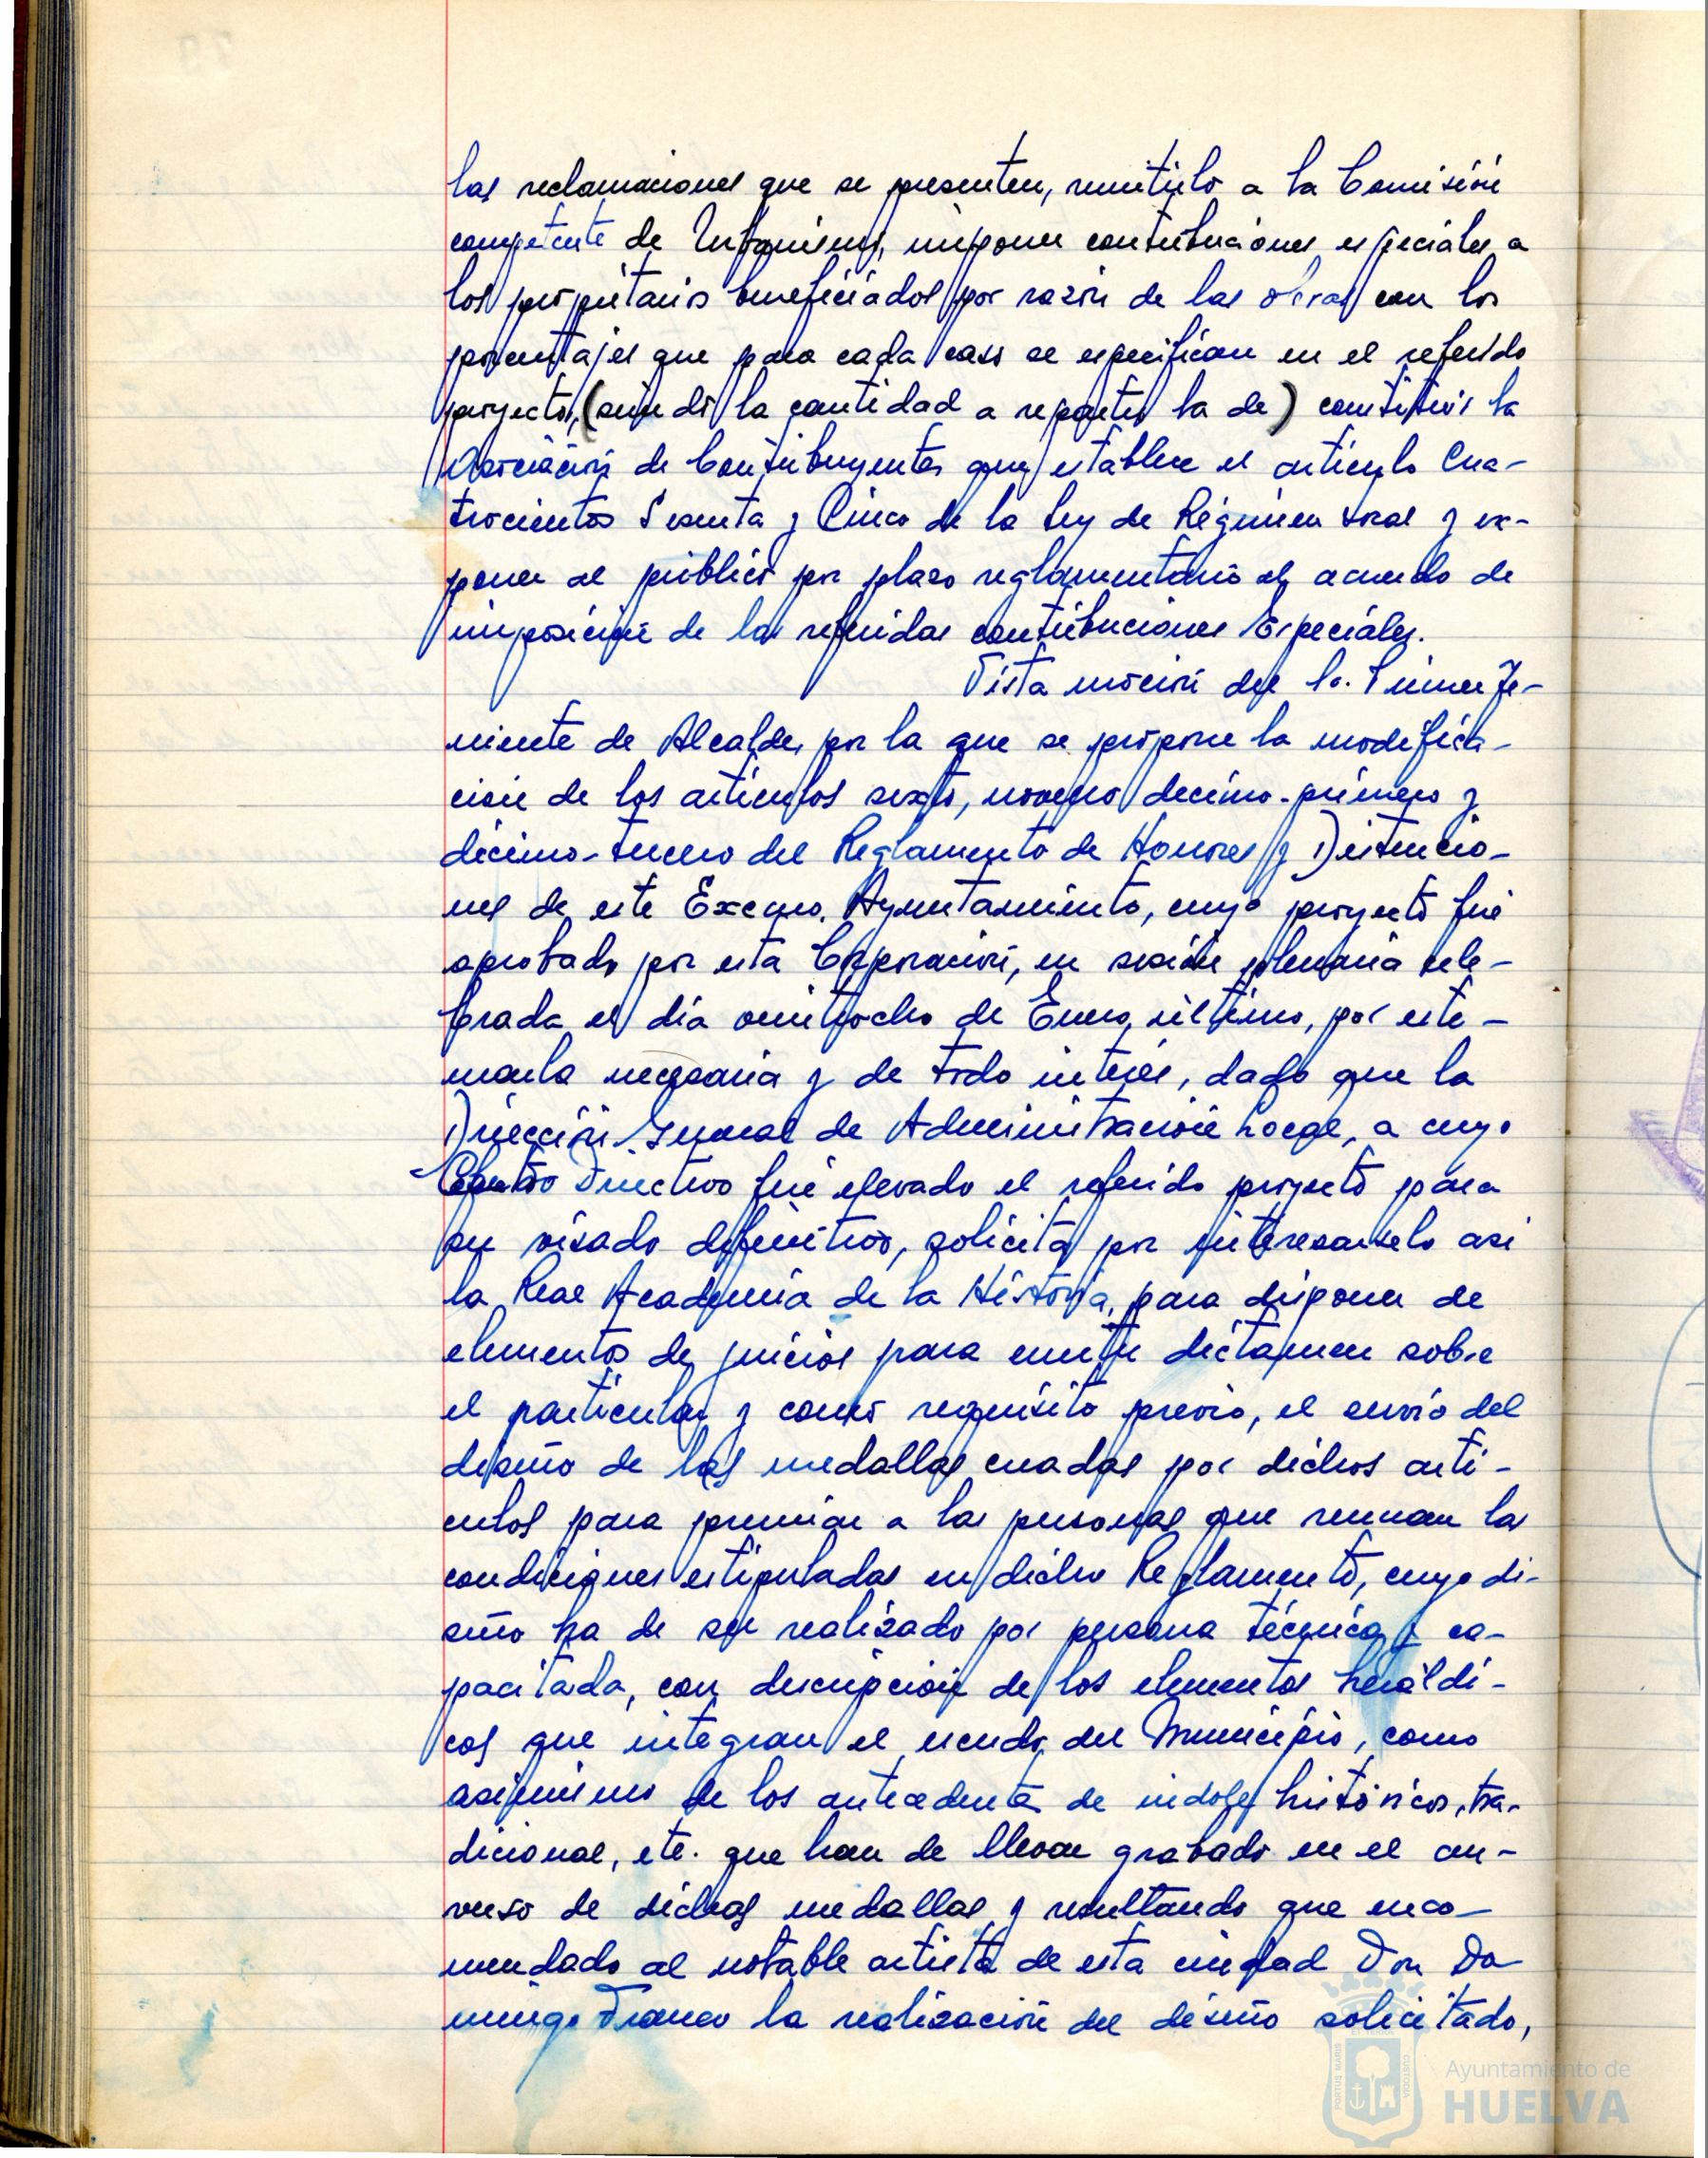 las reclamaciones que se presenten, remitirlo a la Comisión
competente de Urbanismo, imponer contribuciones especiales a
los propietarios beneficiados por razón de las obras con los
porcentajes que para cada caso se especifican en el referido
proyecto, (siendo la cantidad a repartir la de) constituir la
Asociación de Contribuyentes que establece el artículo Cua-
trocientos Sesenta y Cinco de la Ley de Régimen Local y ex-
poner al público por plazo reglamentario el acuerdo de
imposición de las referidas contribuciones Especiales.
Vista moción del Sr. Primer Te-
niente de Alcalde, por la que se propone la modifica-
ción de los artículos sexto, noveno decimo-primero y
décimo-tercero del Reglamento de Honores y Distincio-
nes de este Excmo. Ayuntamiento, cuyo proyecto fué
aprobado por esta Corporación, en sesión plenaria cele-
brada el día veintiocho de Enero último, por esti-
marla necesaria y de todo interés, dado que la
Dirección General de Administración Local, a cuyo
Centro Directivo fué elevado el referido proyecto para
su visado definitivo, solicita por interesarselo asi
la Real Academia de la Historia, para disponer de
elementos de juicios para emitir dictamen sobre
el particular y como requisito previo, el envio del
diseño de las medallas creadas por dichos arti-
culos para premiar a las personas que reunan las
condiciones estipuladas en dicho Reglamento, cuyo di-
seño ha de ser realizado por persona técnica y ca-
pacitada, con descripción de los elementos heráldi-
cos que integran el escudo del Municipio, como
asimismo de los antecedentes de indole histórico, tra-
dicional, etc. que han de llevar grabado en el an-
verso de dichas medallas y resultando que enco-
mendado al notable artista de esta ciudad Don Do
mingo Franco la realización del diseño solicitado,
Ayuntamiento de
HUELVA
PORTUS MARIS
ET TERRAE
CUSTODIA